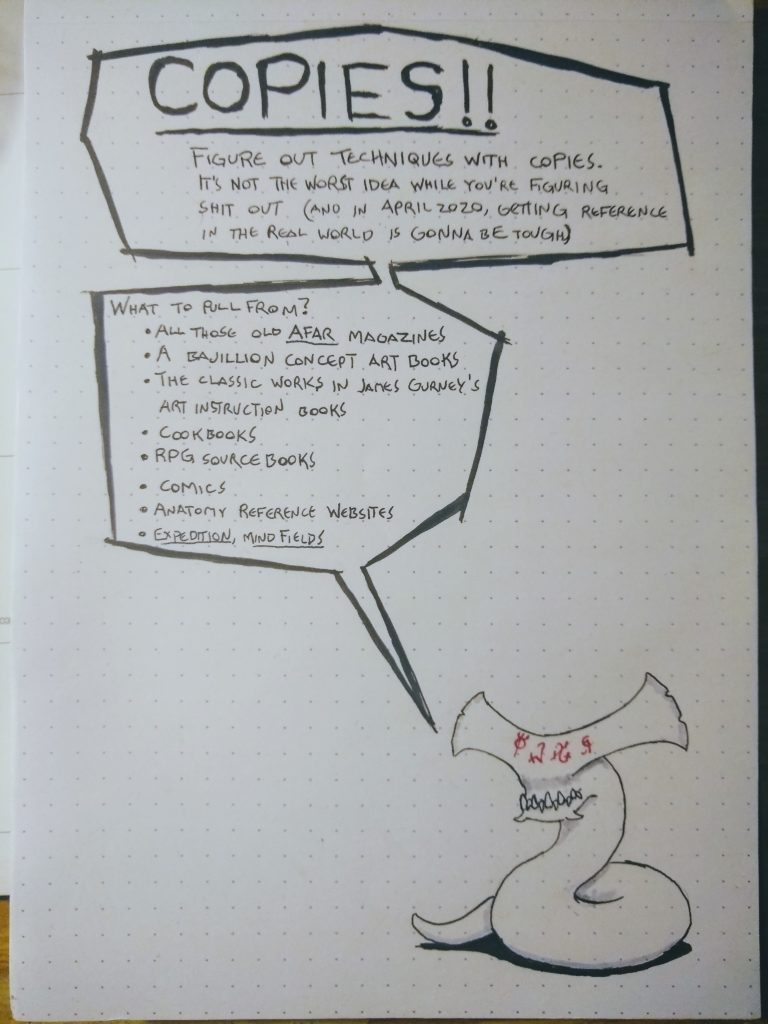 COPIES!!
FIGURE OUT TECHNIQUES WITH COPIES.
IT'S NOT THE WORST IDEA WHILE YOU'RE FIGURING
SHIT OUT (AND IN APRIL 2020, GETTING REFERENCE
IN THE REAL WORLD IS GONNA BE TOUGH)
WHAT TO PULL FROM?
• ALL THOSE OLD AFAR MAGAZINES
• A BAJILLION CONCEPT ART BOOKS
• THE CLASSIC WORKS IN JAMES GURNEY'S
ART INSTRUCTION BOOKS
• COOKBOOKS
• RPG SOURCEBOOKS
• COMICS
• ANATOMY REFERENCE WEBSITES
• EXPEDITION, MIND FIELDS